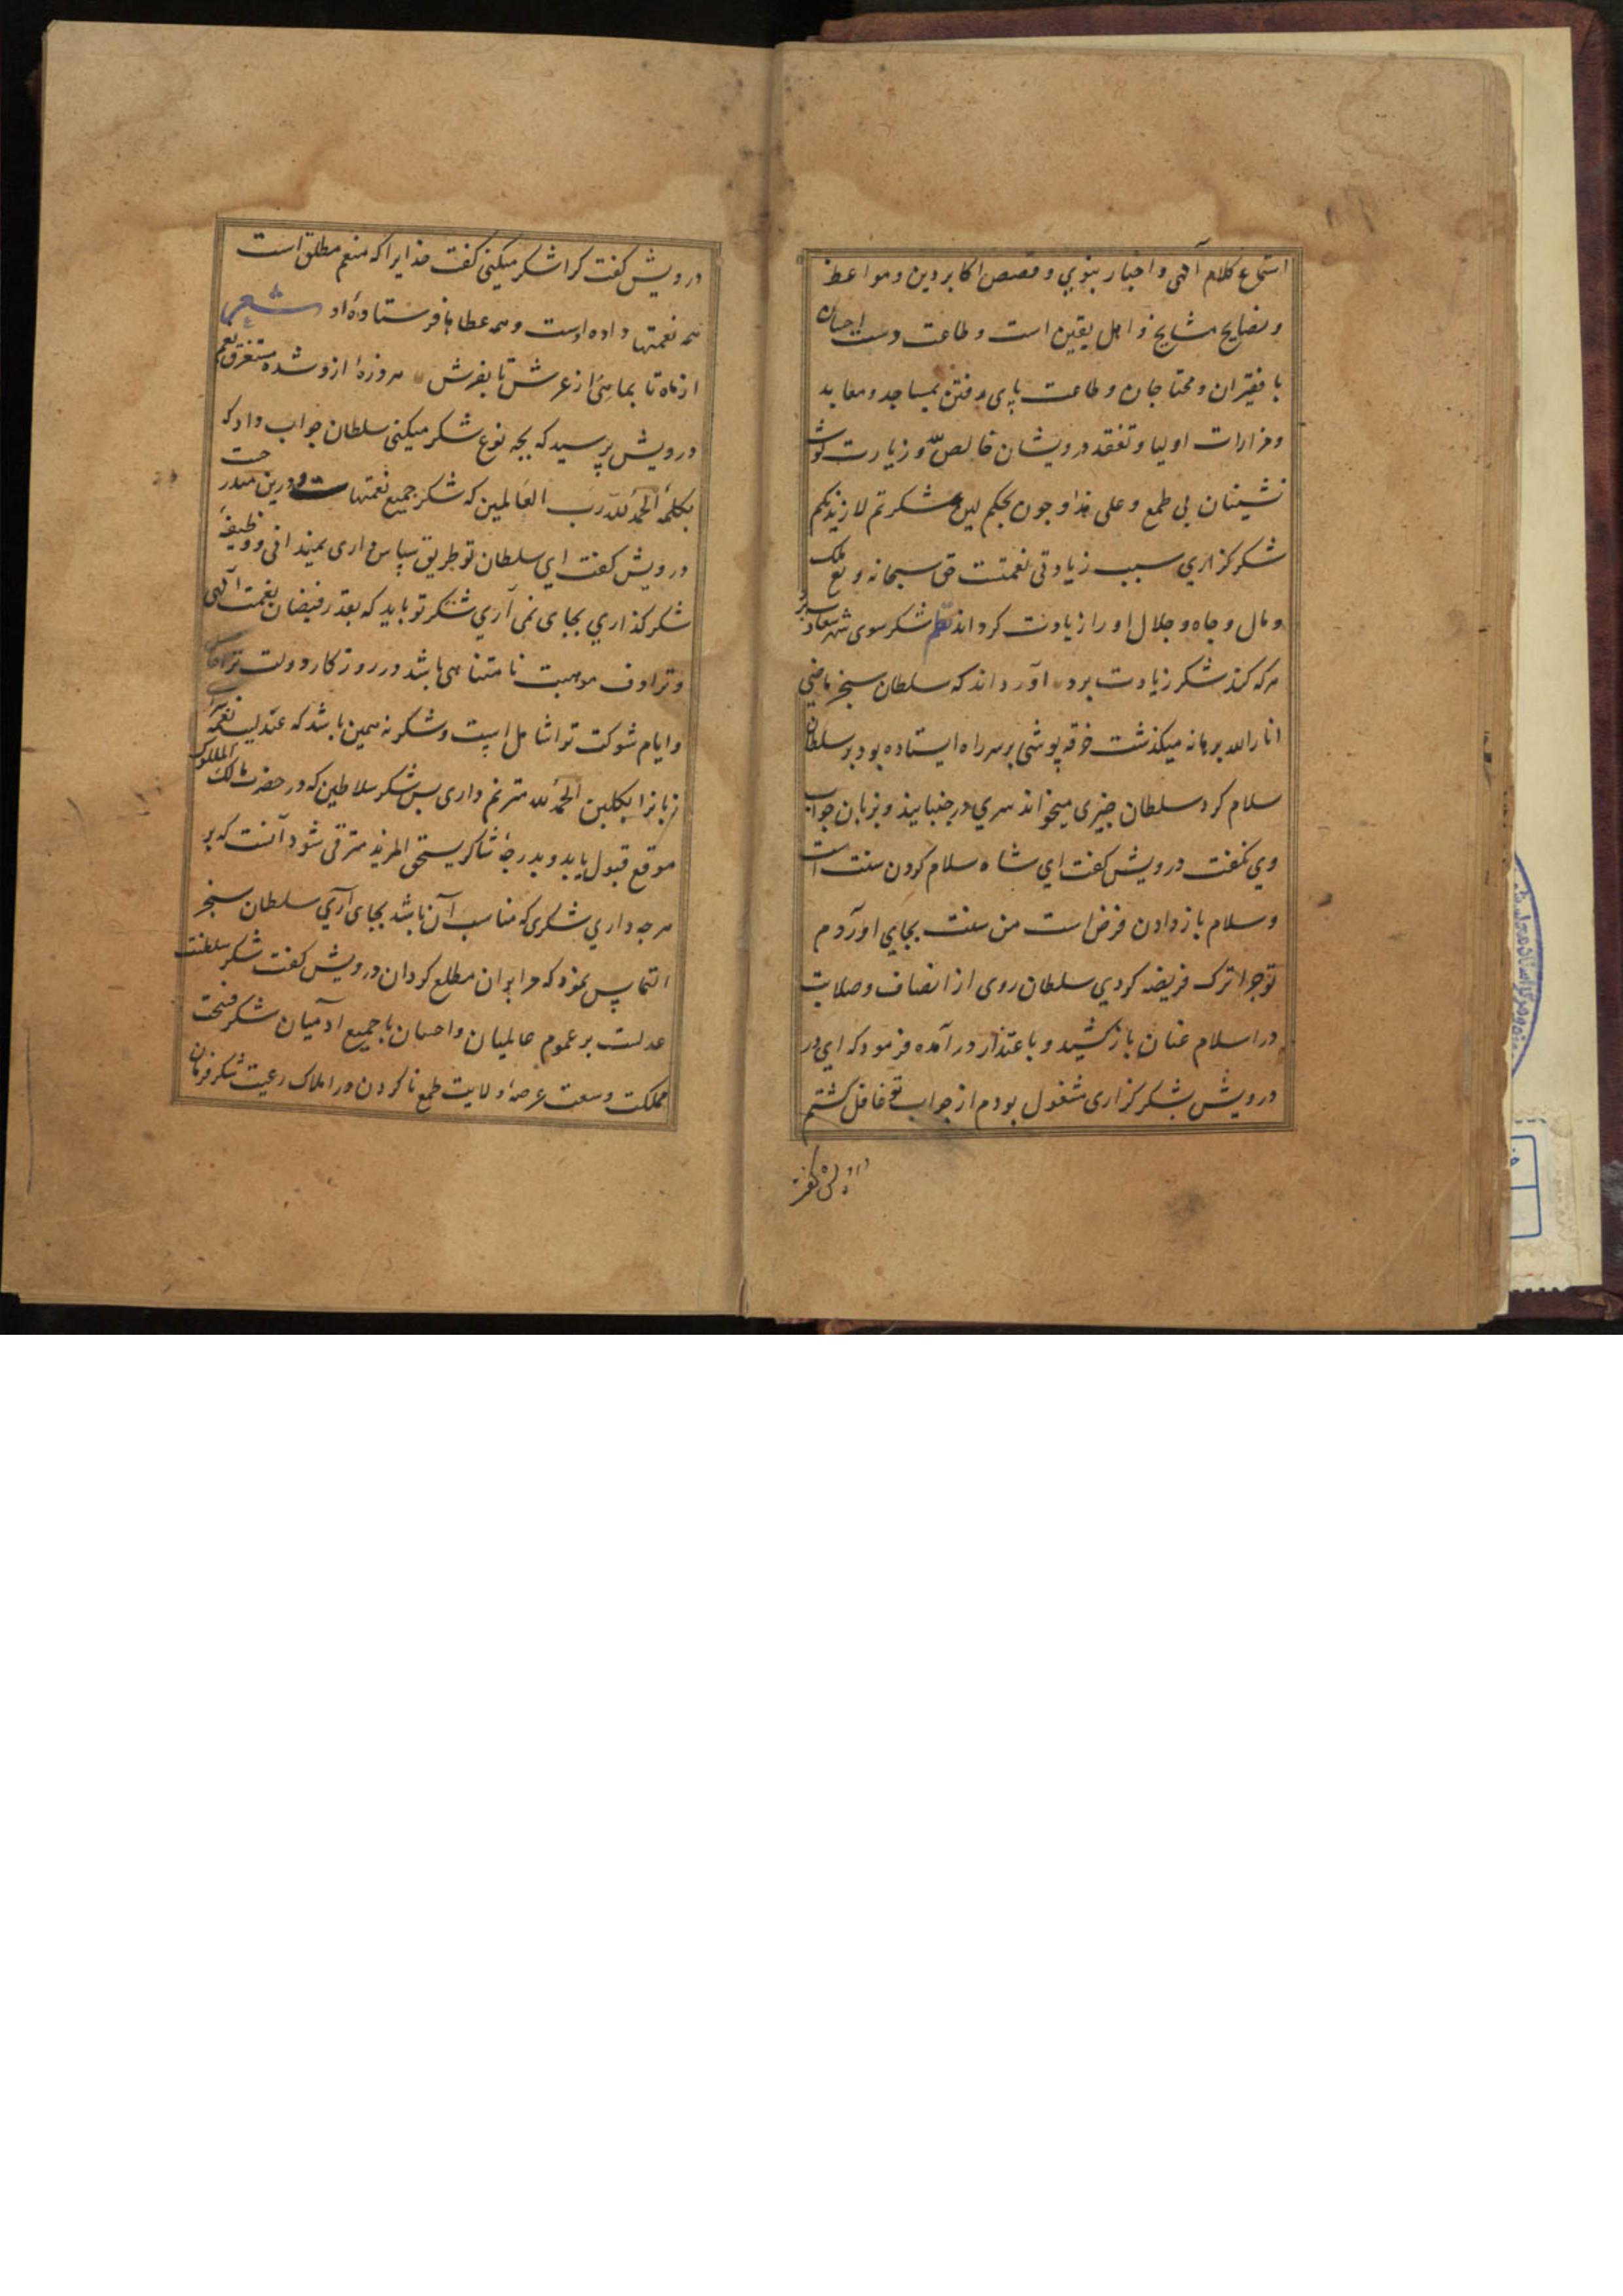 استماع کلام آلهی و اخبار نبوی و قصص اکابر دین و مواعظ
و نصایح مشایخ و اهل یقین است و طاعت دست احسان
با فقیران و محتاجان و طاعت پای رفتن بمساجد و معابد
و مزارات اولیا و تفقد درویشان خالص لله و زیارت گوشه
نشینان بی طمع و علی هذا و جون بحکم لین شکرتم لازیدنکم
شکرکزاری سبب زیادتی نعمتست حق سبحانه و تع ملک
و مال و جاه و جلال او را زیادت کرداند نظم شکر سوی شهر سعادت برد
هرکه کند شکر زیادت برد آورده اند که سلطان سنجر ماضی
انار الله برهانه میکذشت خرقه پوشی بر سر راه ایستاده بود بر سلطان
سلام کرد سلطان جیزی میخواند سری در جنبانید و بزبان جواب
وی نکفت درویش کفت ای شاه سلام کردن سنت است
و سلام باز دادن فرض است من سنت بجای اوردم
تو جرا ترک فریضه کردی سلطان روی از انصاف و صلابت
در اسلام عنان باز کشید و باعتذار در آمده فرمود که ای در
درویش بشکرکزاری مشغول بودم از جواب تو غافل کشتم
درویش کفت
درویش کفت کرا شکر میکنی کفت خدایرا که منعم مطلق است
همه نعمتها داده اوست و همه عطاها فرستاده او شعر
از ماه تا بماهی از عرش تا بفرش هر ذره از و شده مستغرق نعم
درویش پرسید که بجه نوع شکر میکنی سلطان جواب داد که
بکلمه الحمد لله رب العالمین که شکر جمیع نعمتها درین مندرجست
درویش کفت ای سلطان تو طریق سپاس داری نمیدانی و وظیفه
شکر کذاری بجای نمی آری شکر تو باید که بقدر فیضان نعمت آلهی
و ترادف موهبت نامتناهی باشد در روزکار دولت ترا
و ایام شوکت تو اشامل است و شکر نه همین باشد که عندلیب نغمه سرای
زبانرا بکلبن الحمد لله مترنم داری بس شکر سلاطین که در حضرت مالک الملوک
موقع قبول یابد و بدرجه شاکر یستحق المزید مترقی شود آنست که بر
هرجه داری شکری که مناسب آن باشد بجای آری سلطان سنجر
التماس نمود که مرا بران مطلع کردان درویش کفت شکر سلطنت
عدلست بر عموم عالمیان و احسان با جمیع ادمیان شکر فسحت
مملکت و سعت عرصه ولایت طمع ناکردن در املاک رعیت شکر فرمان